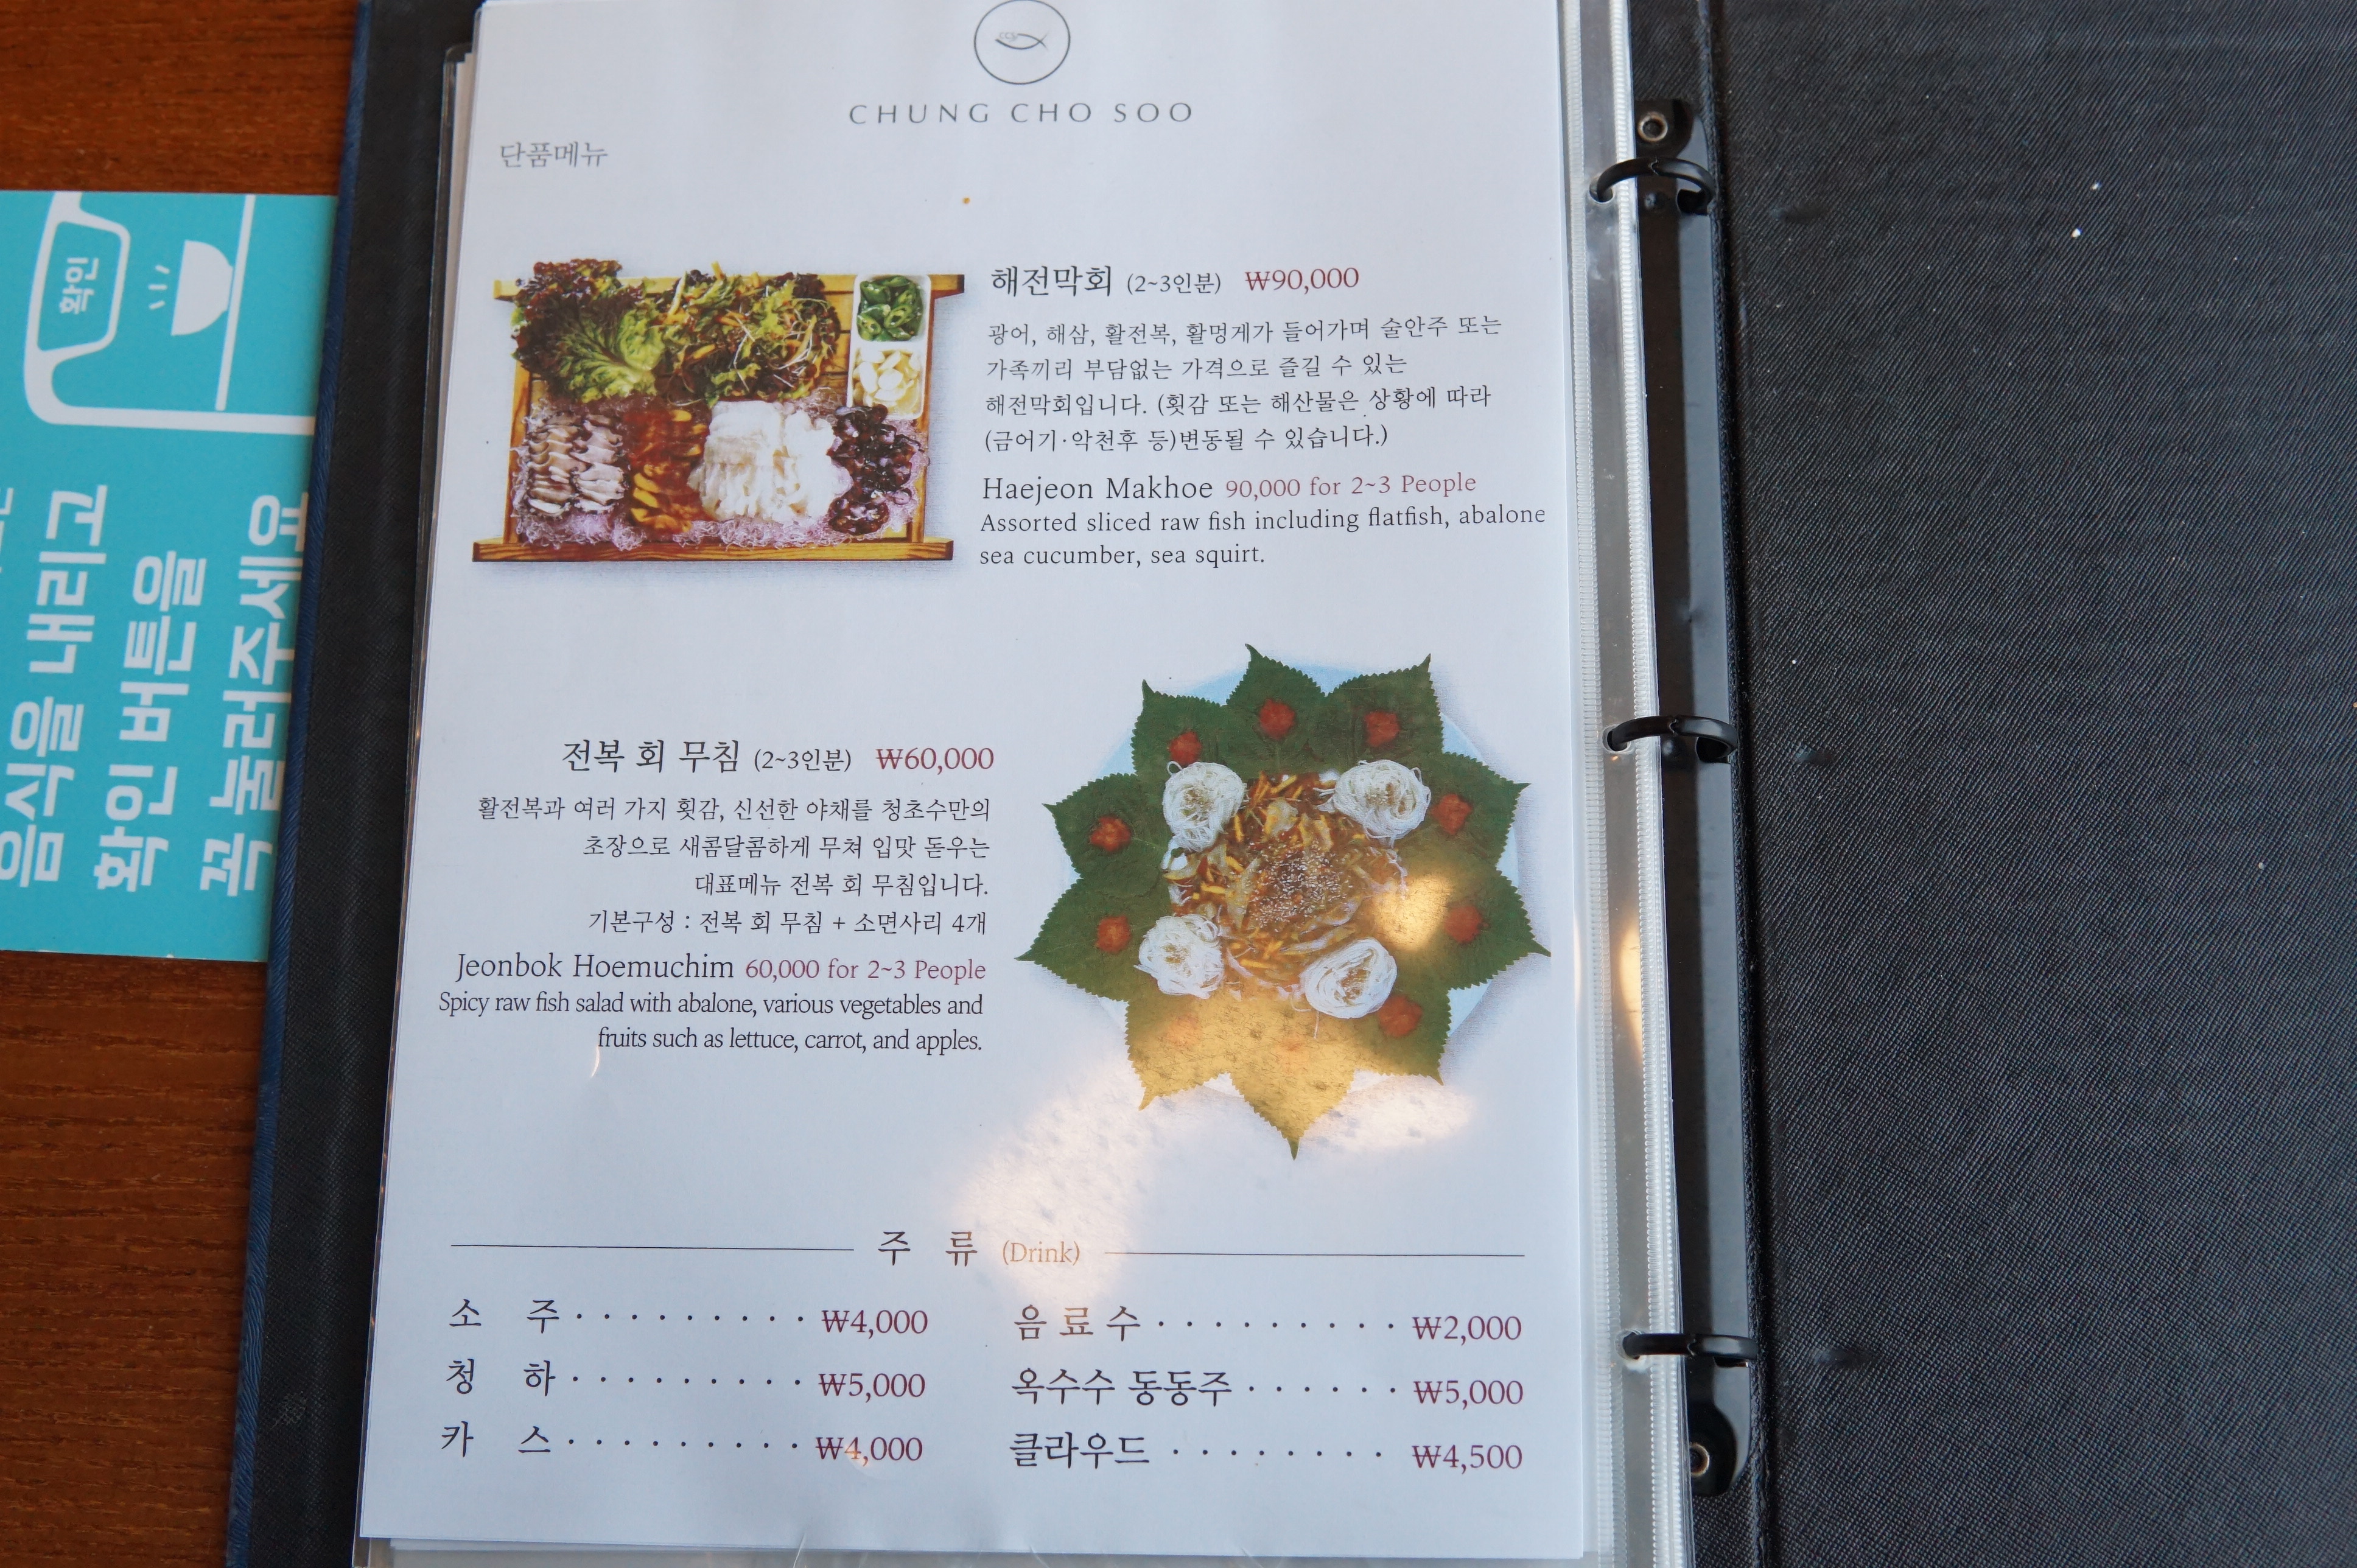 CHUNG CHO SOO
단품메뉴
해전막회 (2~3인분) ₩90,000
광어, 해삼, 활전복, 활멍게가 들어가며 술안주 또는
가족끼리 부담없는 가격으로 즐길 수 있는
해전막회입니다. (횟감 또는 해산물은 상황에 따라
(금어기·악천후 등)변동될 수 있습니다.)
Haejeon Makhoe 90,000 for 2~3 People
Assorted sliced raw fish including flatfish, abalone
sea cucumber, sea squirt.
전복 회 무침 (2~3인분) ₩60,000
활전복과 여러 가지 횟감, 신선한 야채를 청초수만의
초장으로 새콤달콤하게 무쳐 입맛 돋우는
대표메뉴 전복 회 무침입니다.
기본구성 : 전복 회 무침 + 소면사리 4개
Jeonbok Hoemuchim 60,000 for 2~3 People
Spicy raw fish salad with abalone, various vegetables and
fruits such as lettuce, carrot, and apples.
주 류 (Drink)
소 주 · · · · · · · · · · ₩4,000
청 하 · · · · · · · · · · ₩5,000
카 스 · · · · · · · · · · ₩4,000
음 료 수 · · · · · · · · · · ₩2,000
옥수수 동동주 · · · · · · ₩5,000
클라우드 · · · · · · · · ₩4,500
확인
음식을 내리고
확인 버튼을
꼭 눌러주세요